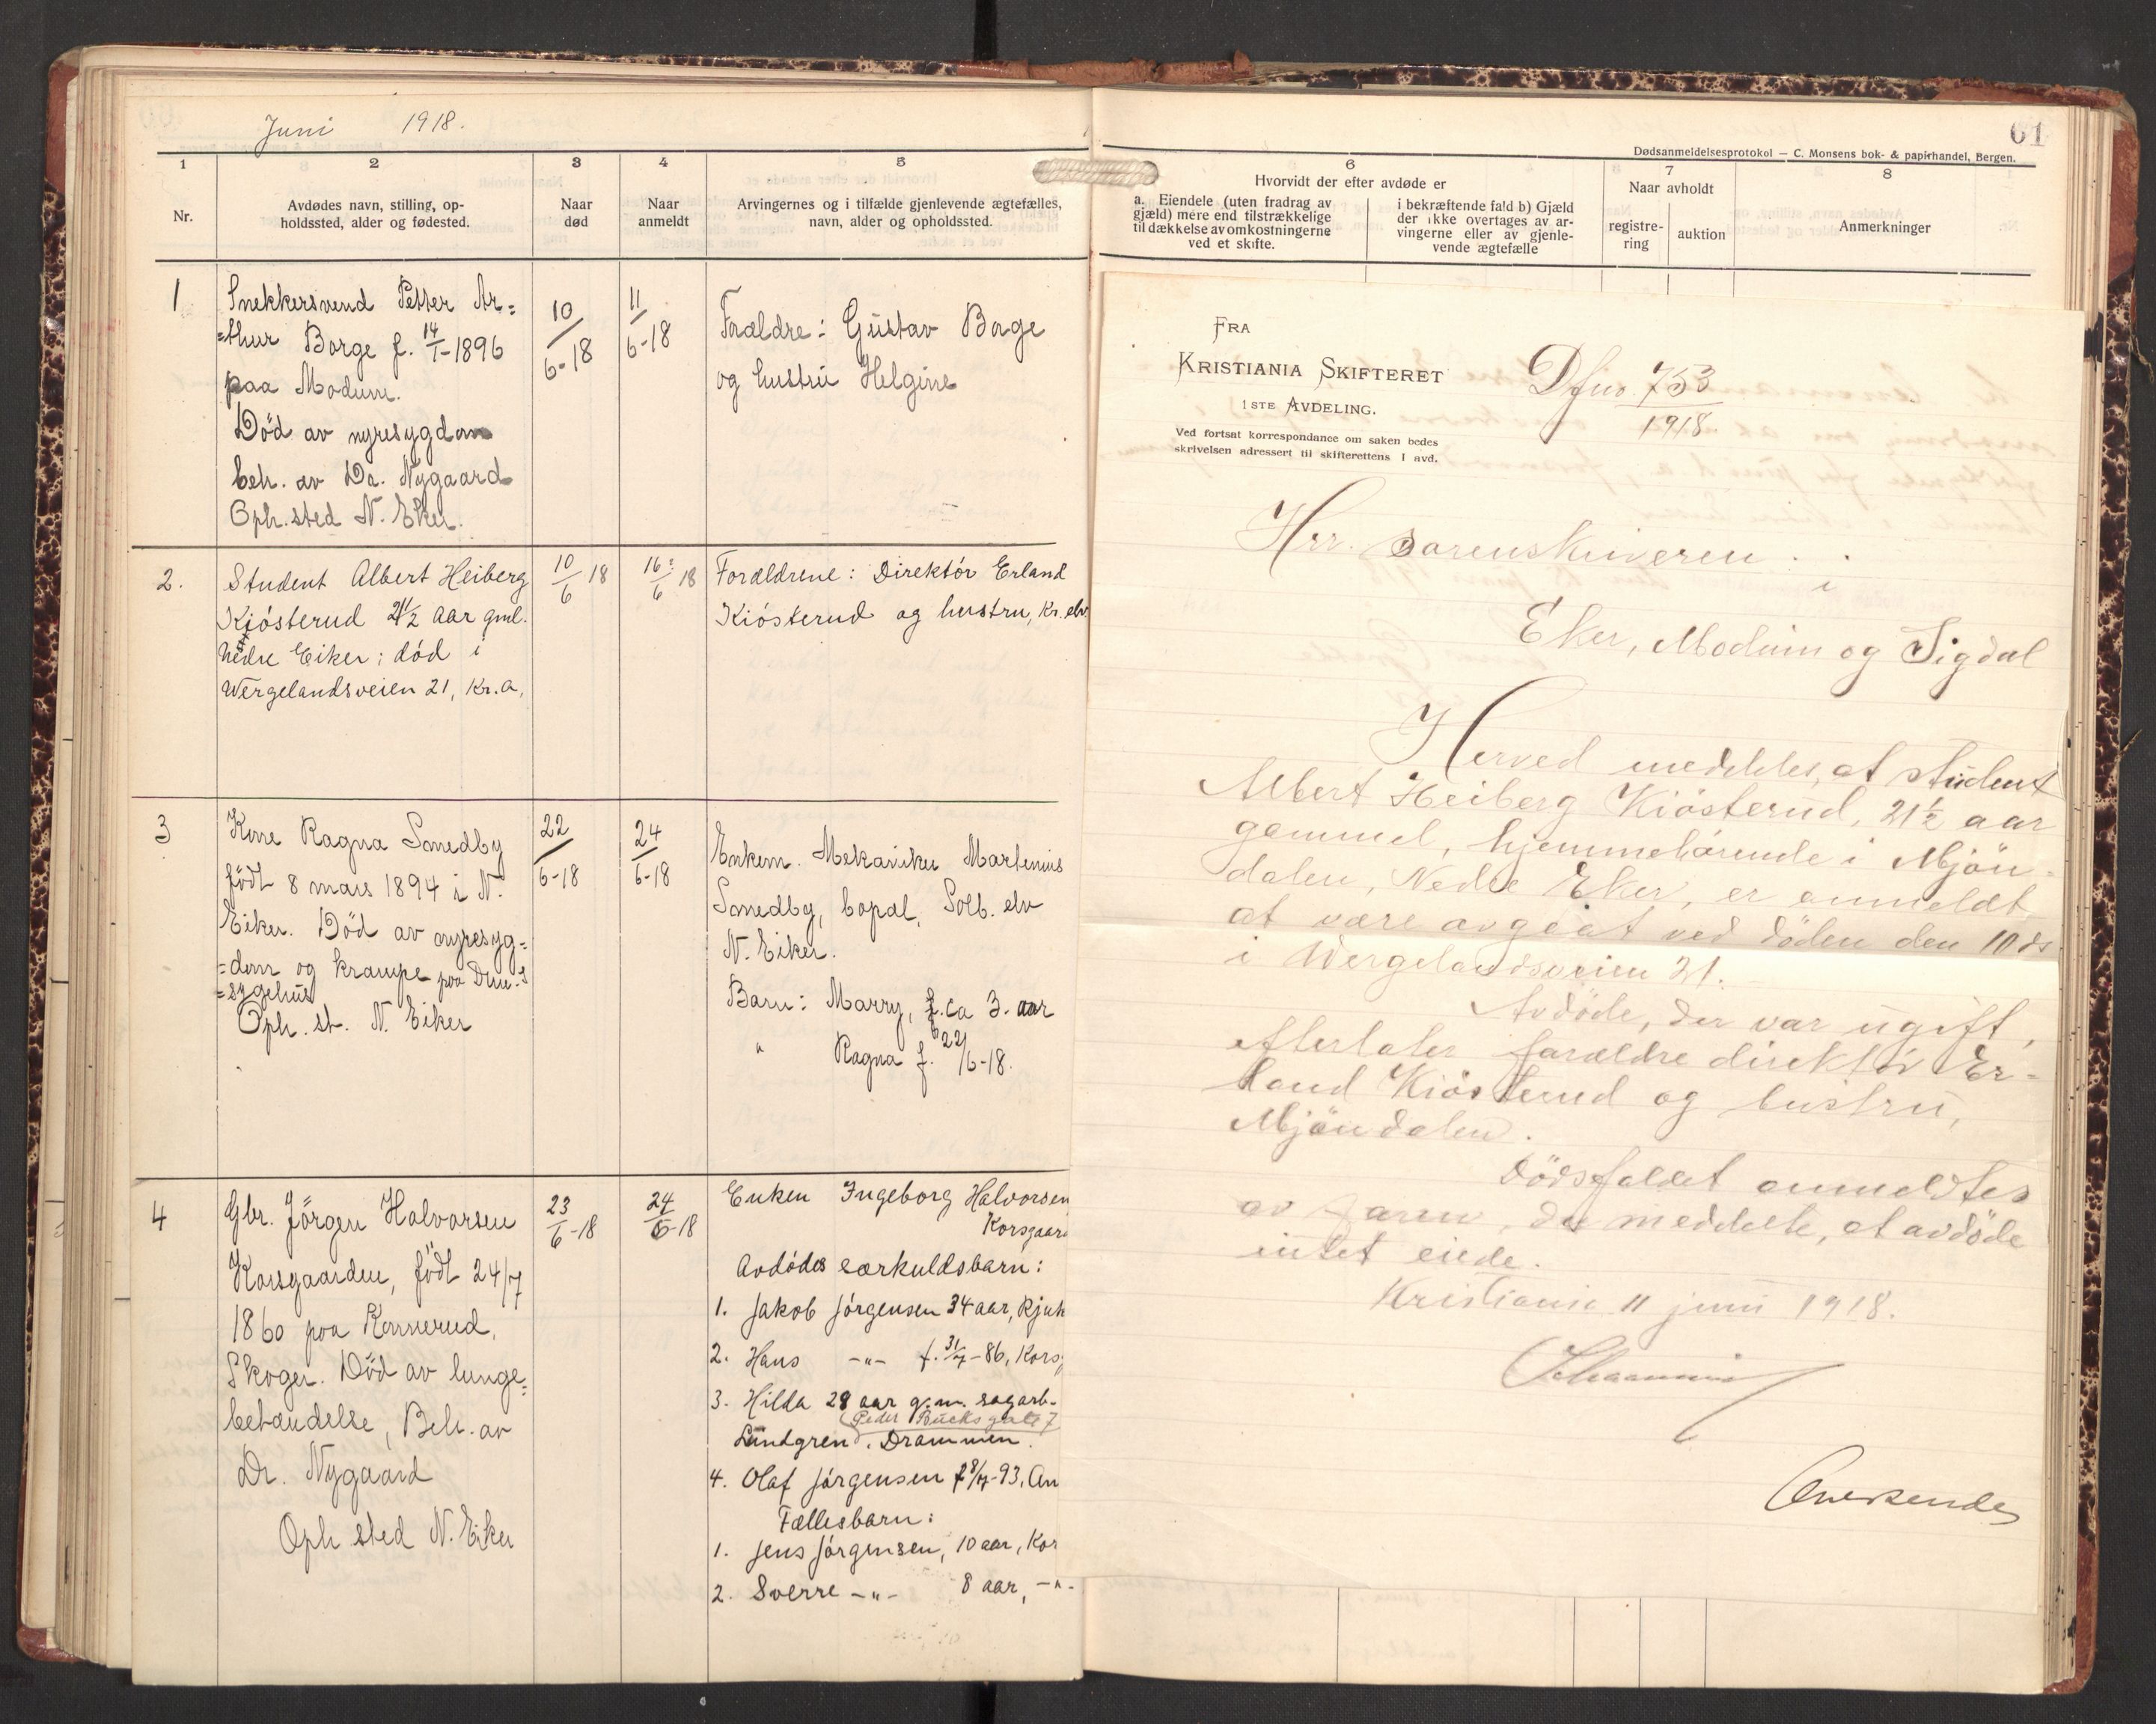 Juni 1918.
61
Dødsanmeldelsesprotokol — C. Monsens bok- & papirhandel, Bergen.
1
Nr.
2
Avdødes navn, stilling, op-
holdssted, alder og fødested.
3
Naar
død
4
Naar
anmeldt
5
Arvingernes og i tilfælde gjenlevende ægtefælles,
navn, alder og opholdssted.
6
Hvorvidt der efter avdøde er
a. Eiendele (uten fradrag av
gjæld) mere end tilstrækkelige
til dækkelse av omkostningerne
ved et skifte.
i bekræftende fald b) Gjæld
der ikke overtages av ar-
vingerne eller av gjenle-
vende ægtefælle
7
Naar avholdt
registre-
ring
auktion
8
Anmerkninger
1
Snekkersvend Petter Ar=
=thur Borge f. 14/1-1896
paa Modum.
Död av nyresygdom
beh. av Dr. Nygaard
Oph. sted N. Eker.
10/6-18
11/6-18
Forældre: Gustav Borge
og hustru Helgine
2.
Student Albert Heiberg
Kiösterud 21 1/2 aar gml.
Nedre Eiker; död i
Wergelandsveien 21, Kr.a,
10/6 18
16/6 18
Forældrene: Direktör Erland
Kiösterud og hustru, Kr. elv.
3
Kone Ragna Smedby
födt 8 mars 1894 i N.
Eiker. Död av nyresyg=
=dom og krampe paa Dm.s
=sygehus
Oph. st. N. Eiker
22/6-18
24/6-18
Enkem. Mekaniker Martinius
Smedby, bopæl, Solb. elv
N. Eiker.
Barn: Marry, f. ca 3. aar
" Ragna f. 22/6-18.
4
Gbr. Jörgen Halvorsen
Korsgaarden, födt 24/7
1860 paa Konnerud,
Skoger. Död av lunge=
betændelse, Beh. av
Dr. Nygaard
Oph sted N. Eiker
23/6-18
24/6-18
Enken Ingeborg Halvorsen
Korsgaard
Avdödes særkuldsbarn:
1. Jakob Jörgensen 34 aar, Rjuk
2. Hans -"- f. 31/7-86, Kors
3. Hilda 28 aar g.m. sagarb.
(Peder Bucks gate 7
Lundgren, Drammen.
4. Olaf Jörgensen f 8/7-93, An
Fællesbarn:
1. Jens Jörgensen, 10 aar, Kor
2. Sverre -"- 8 aar, -"-
FRA
KRISTIANIA SKIFTERET
1STE AVDELING.
Ved fortsat korrespondance om saken bedes
skrivelsen adressert til skifterettens I avd.
Dfno. 753
1918.
Hrr. Sorenskriveren
i
Eker, Modum og Sigdal
Herved meddeles, at student
Albert Heiberg Kiösterud, 21 1/2 aar
gammel, hjemmehörende i Mjön-
dalen, Nedre Eker, er anmeldt
at være avgaat ved döden den 10 ds
i Wergelandsveien 21.
Avdöde, der var ugift,
efterlater forældre direktör Er-
land Kiösterud og hustru,
Mjöndalen.
Dödsfaldet anmeldtes
av faren, der meddelte, at avdöde
intet eiede.
Kristiania 11 juni 1918.